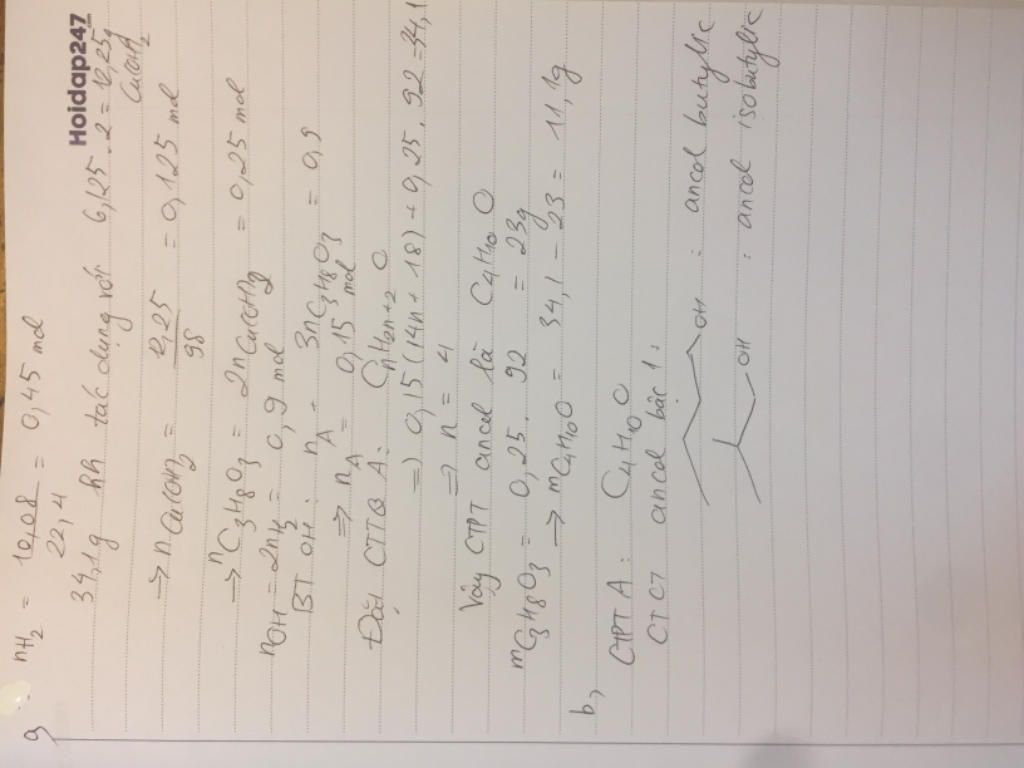 Hoidap247
a, nH2 = 10,08 / 22,4 = 0,45 mol
34,1g hh tác dụng với 6,125 . 2 = 12,25g Cu(OH)2
→ nCu(OH)2 = 12,25 / 98 = 0,125 mol
→ nC3H8O3 = 2nCu(OH)2 = 0,25 mol
nOH = 2nH2 = 0,9 mol
BT OH: nA + 3nC3H8O3 = 0,9
⇒ nA = 0,15 mol
Đặt CTTQ A: CnH2n+2O
⇒ 0,15(14n + 18) + 0,25 . 92 = 34,1
⇒ n = 4
Vậy CTPT ancol là C4H10O
mC3H8O3 = 0,25 . 92 = 23g
→ mC4H10O = 34,1 - 23 = 11,1g
b,
CTPT A: C4H10O
CTCT ancol bậc 1:
OH : ancol butylic
OH : ancol isobutylic